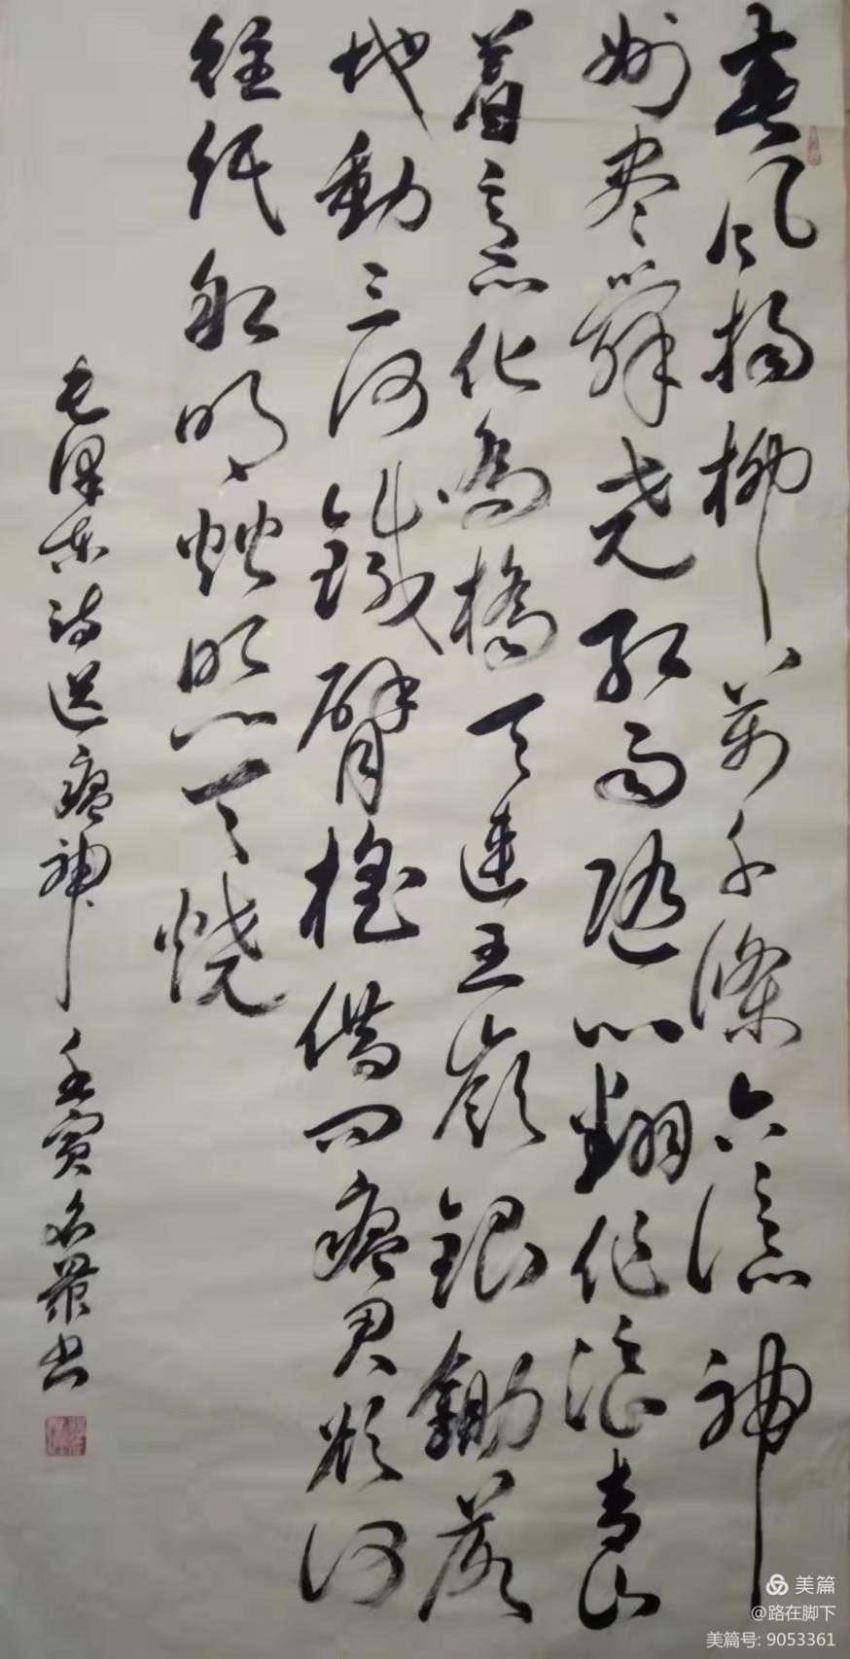 春风楊柳萬千條六億神
州尽舜尧红雨随心翻作浪青山
着意化為橋天連五嶺銀鋤落
地動三河鐵臂摇借问瘟君欲何
往纸船明烛照天烧
毛泽东诗送瘟神 壬寅书
美篇
@路在脚下
美篇号: 9053361